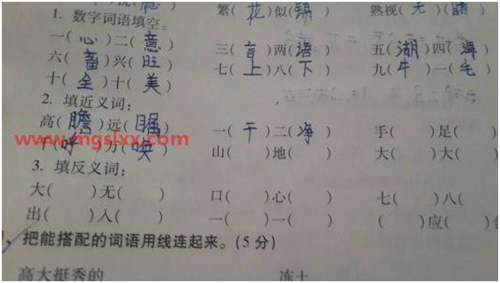 繁(花)似(锦) 熟视(无)(睹)
1. 数字词语填空。
一(心)二(意) 三(言)两(语) 五(湖)四(海)
六(畜)兴(旺) 七(上)八(下) 九(牛)一(毛)
十(全)十(美)
2. 填近义词:
高(瞻)远(瞩) 一(干)二(净) 手( )足( )
www.mgslxx.com
(呼) (唤) 山( )地( ) 大( )大( )
3. 填反义词:
大( )无( ) 口( )心( ) 七( )八( )
出( )入( ) 一( )一( ) ( )应( )
把能搭配的词语用线连起来。(5分)
高大挺秀的 冻土